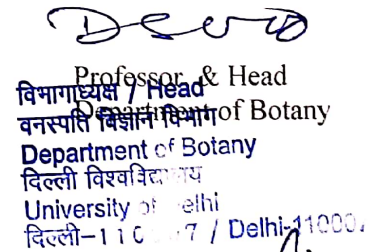 Professor & Head
विभागाध्यक्ष / Head
Department of Botany
वनस्पति विज्ञान विभाग
Department of Botany
दिल्ली विश्वविद्यालय
University of Delhi
दिल्ली-110007 / Delhi-110007